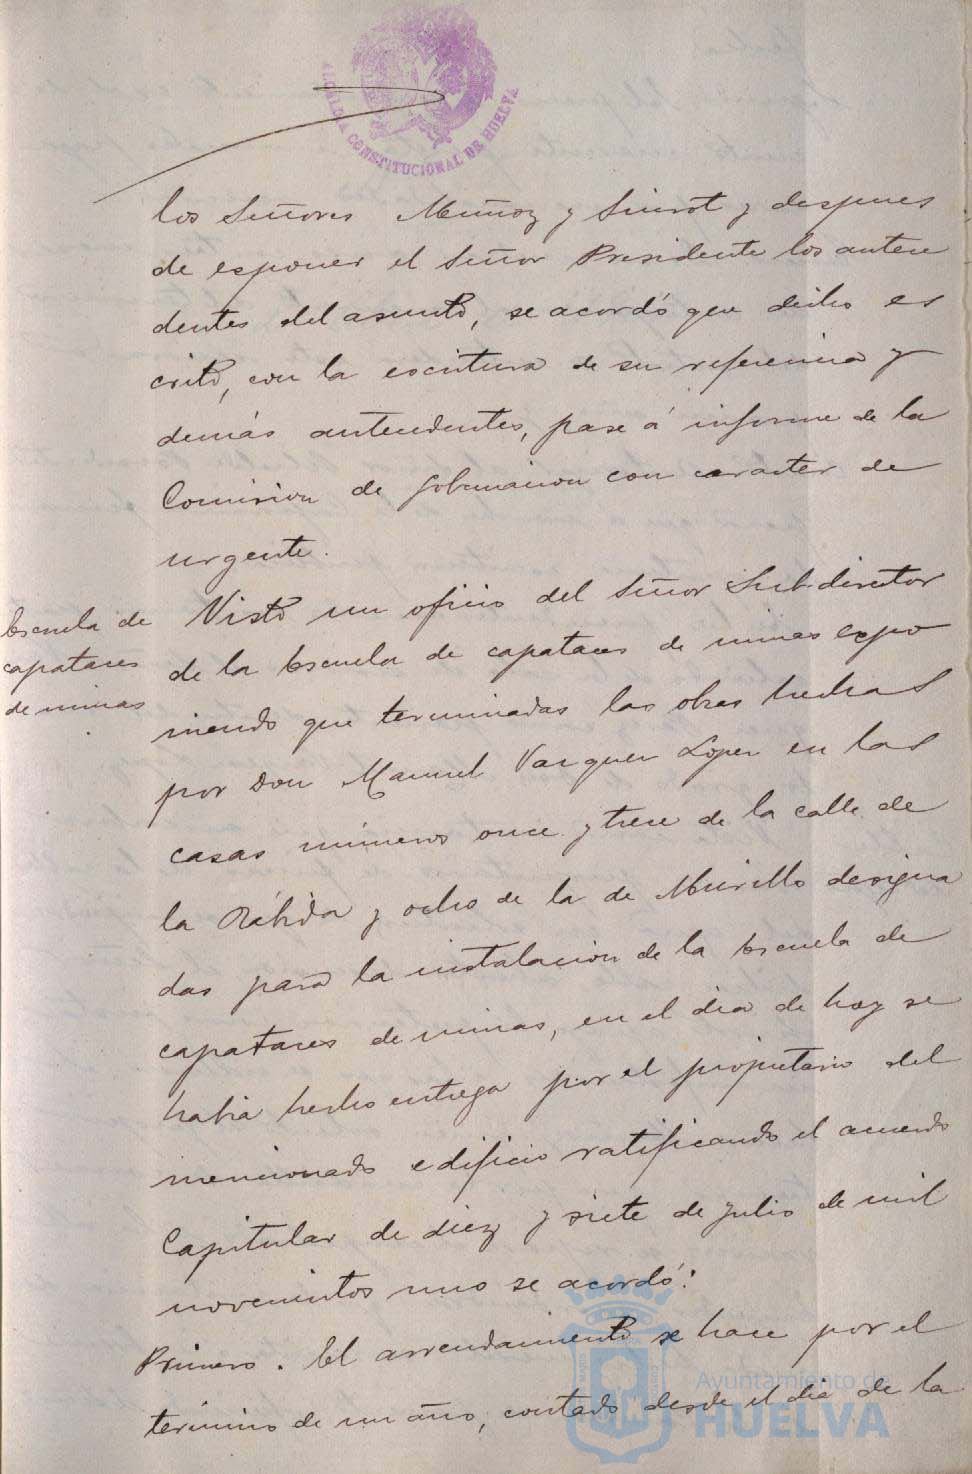 ALCALDIA CONSTITUCIONAL DE HUELVA
los Señores Muñoz y Sinrot y despues
de esponer el Señor Presidente los antece
dentes del asunto, se acordó que dicho es
crito, con la escritura de su referencia y
demás antecedentes, pase á informe de la
Comision de Gobernacion con caracter de
urgente.
Escuela de
capataces
de minas
Visto un oficio del Señor Subdirector
de la Escuela de capataces de minas expo
niendo que terminadas las obras hechas
por Don Manuel Vazquez Lopez en las
casas números once y trece de la calle de
la Rábida y ocho de la de Murillo designa
das para la instalacion de la Escuela de
capataces de minas, en el dia de hoy se
habia hecho entrega por el propietario del
mencionado edificio ratificando el acuerdo
Capitular de diez y siete de Julio de mil
novecientos uno se acordó:
Primero. El arrendamiento se hace por el
termino de un año, contado desde el dia de la
Ayuntamiento de
HUELVA